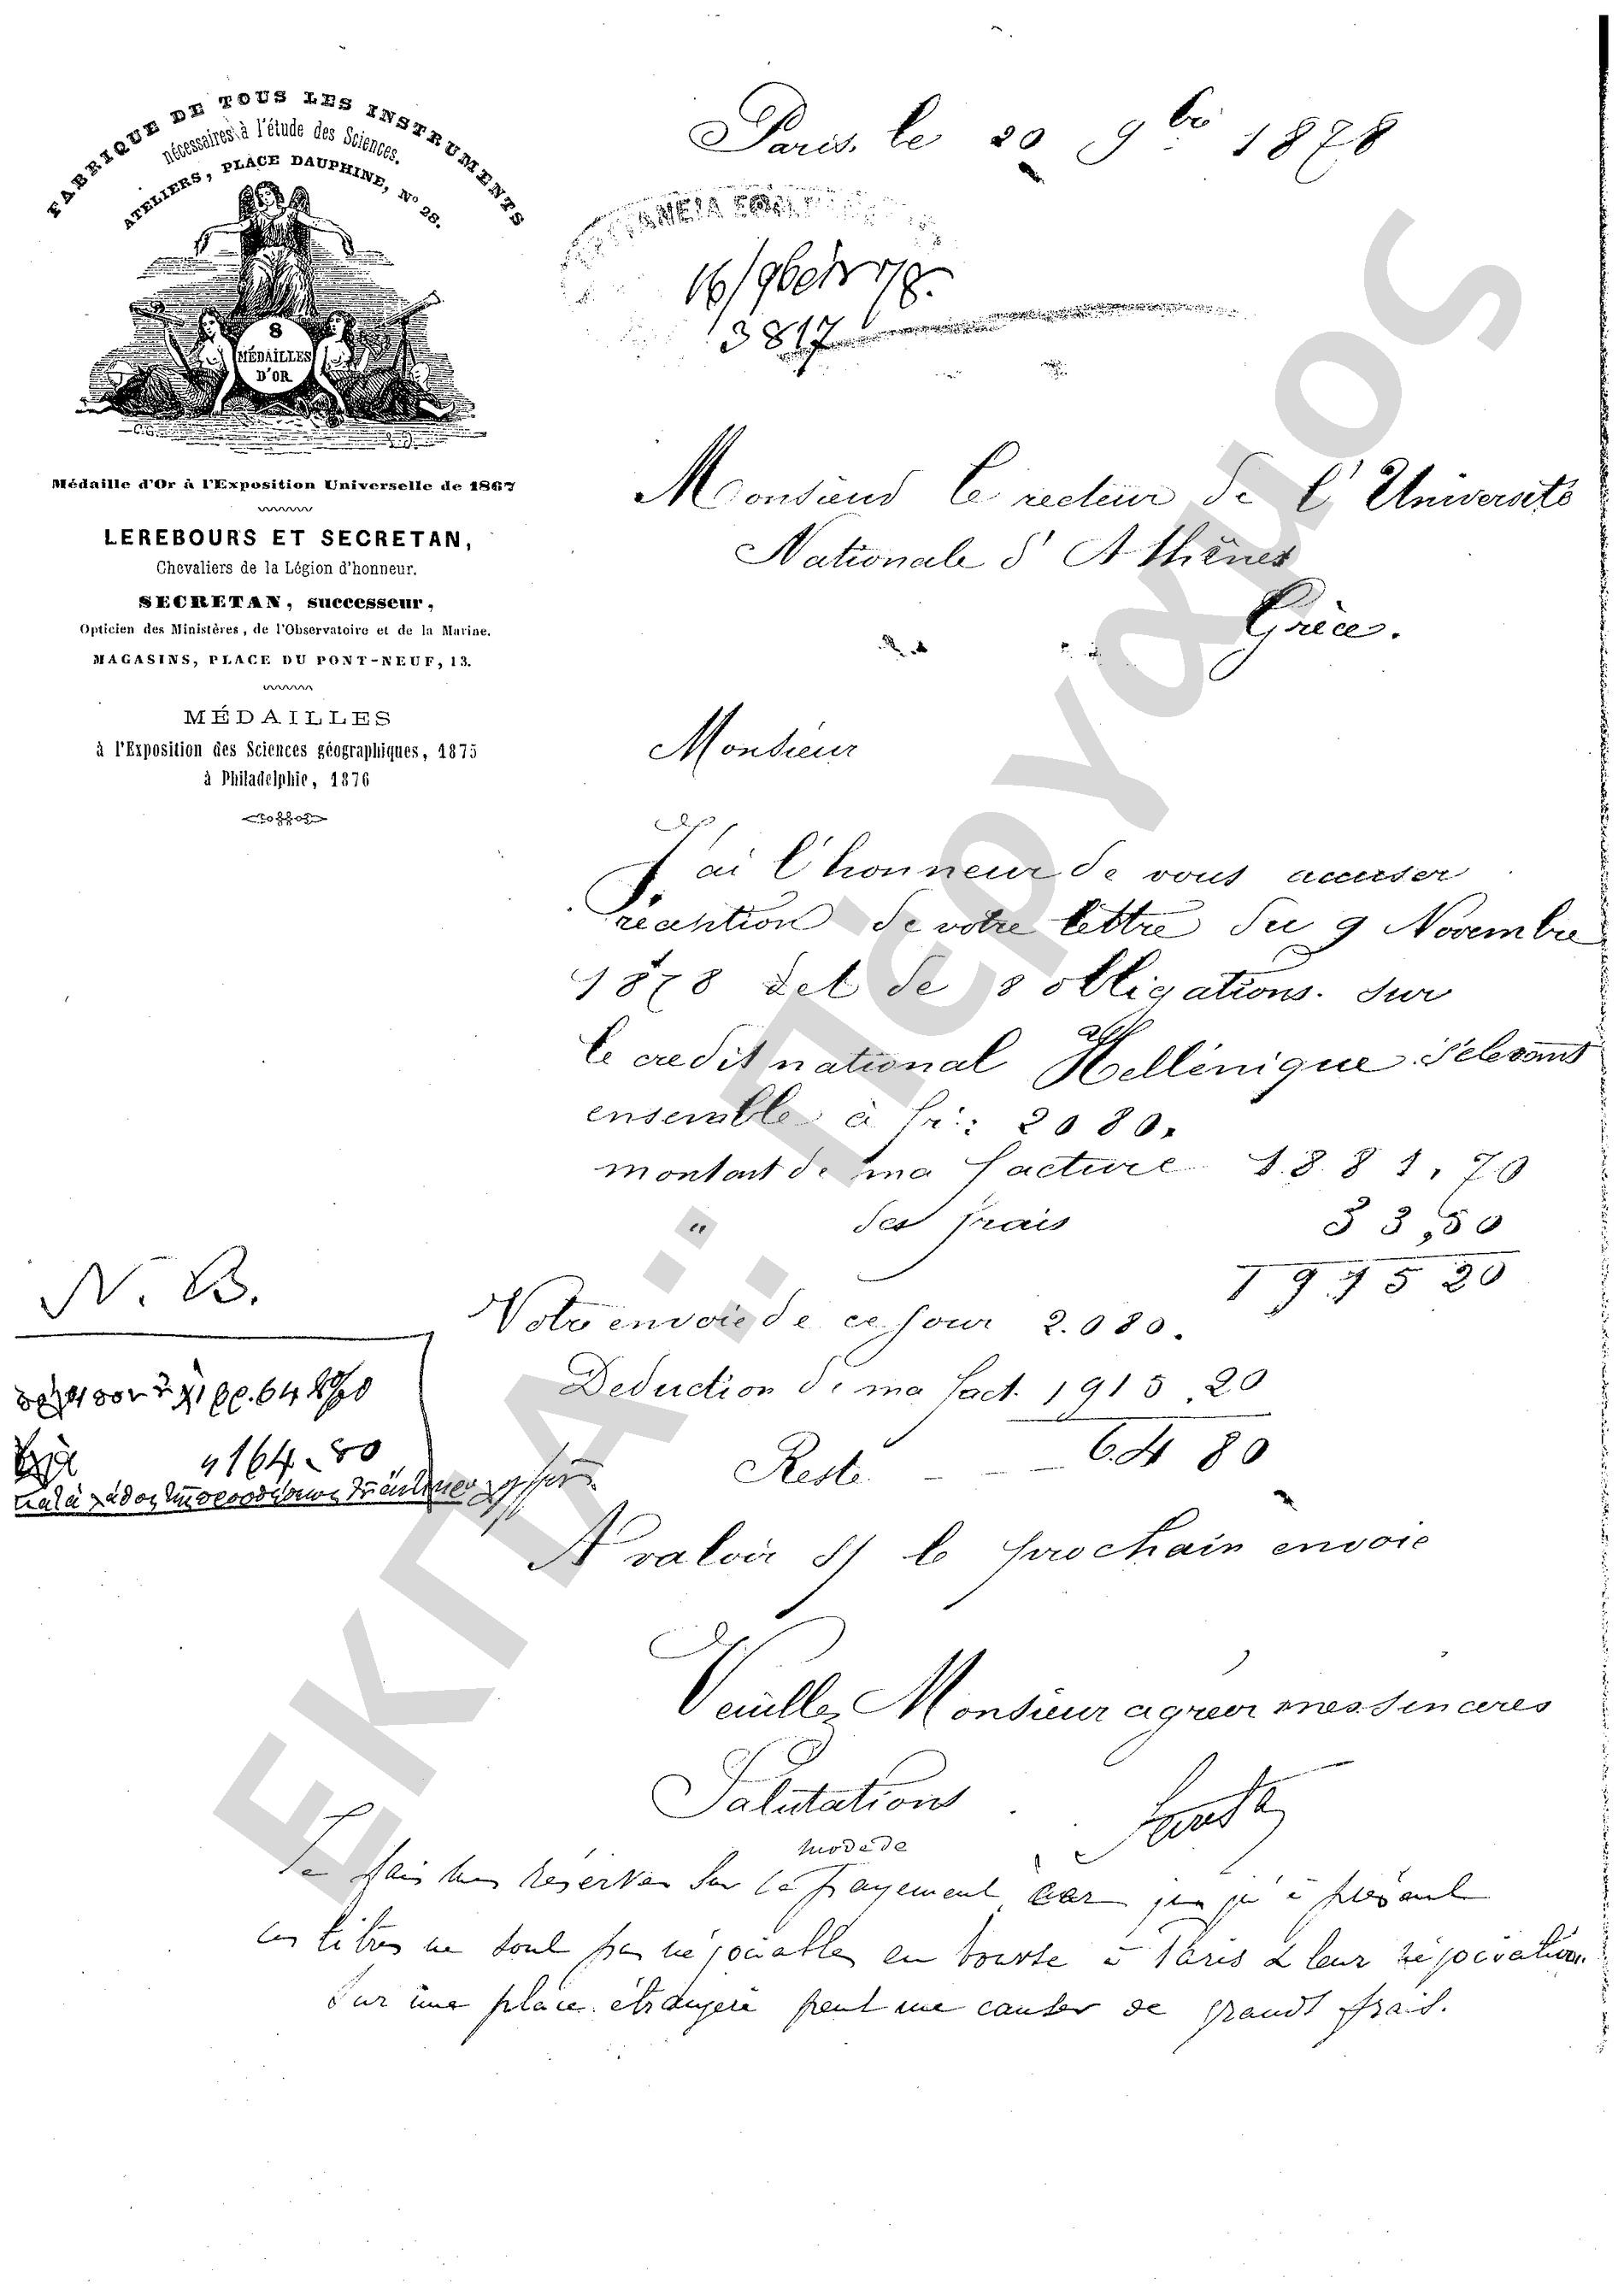 FABRIQUE DE TOUS LES INSTRUMENTS
nécessaires à l'étude des Sciences.
ATELIERS, PLACE DAUPHINE, N° 28.
8
MÉDAILLES
D'OR
Médaille d'Or à l'Exposition Universelle de 1867
LEREBOURS ET SECRETAN,
Chevaliers de la Légion d'honneur.
SECRETAN, successeur,
Opticien des Ministères, de l'Observatoire et de la Marine.
MAGASINS, PLACE DU PONT-NEUF, 13.
MÉDAILLES
à l'Exposition des Sciences géographiques, 1875
à Philadelphie, 1876
Paris, le 20 9bre 1878
3817
Monsieur le recteur de l'Université
Nationale d'Athènes
Grèce.
Monsieur
J'ai l'honneur de vous accuser
réception de votre lettre du 9 Novembre
1878 et de 8 obligations sur
le credit national Hellènique s'elevant
ensemble à fr: 2080.
montant de ma facture 1881,70
" des frais 33,50
1915 20
Votre envoie de ce jour 2.080.
Deduction de ma fact. 1915.20
Reste - - - 64 80
A valoir s/ le prochain envoie
Veuillez Monsieur agreer mes sinceres
Salutations
Je fais mes réserves sur le mode de payement car jusqu'à présent
ces titres ne sont pas négociables en bourse à Paris & leur négociation
sur une place étrangère peut me causer de grands frais.
N. B.
64 80
" 164-80
ΕΚΠΑ: Ιστορικό